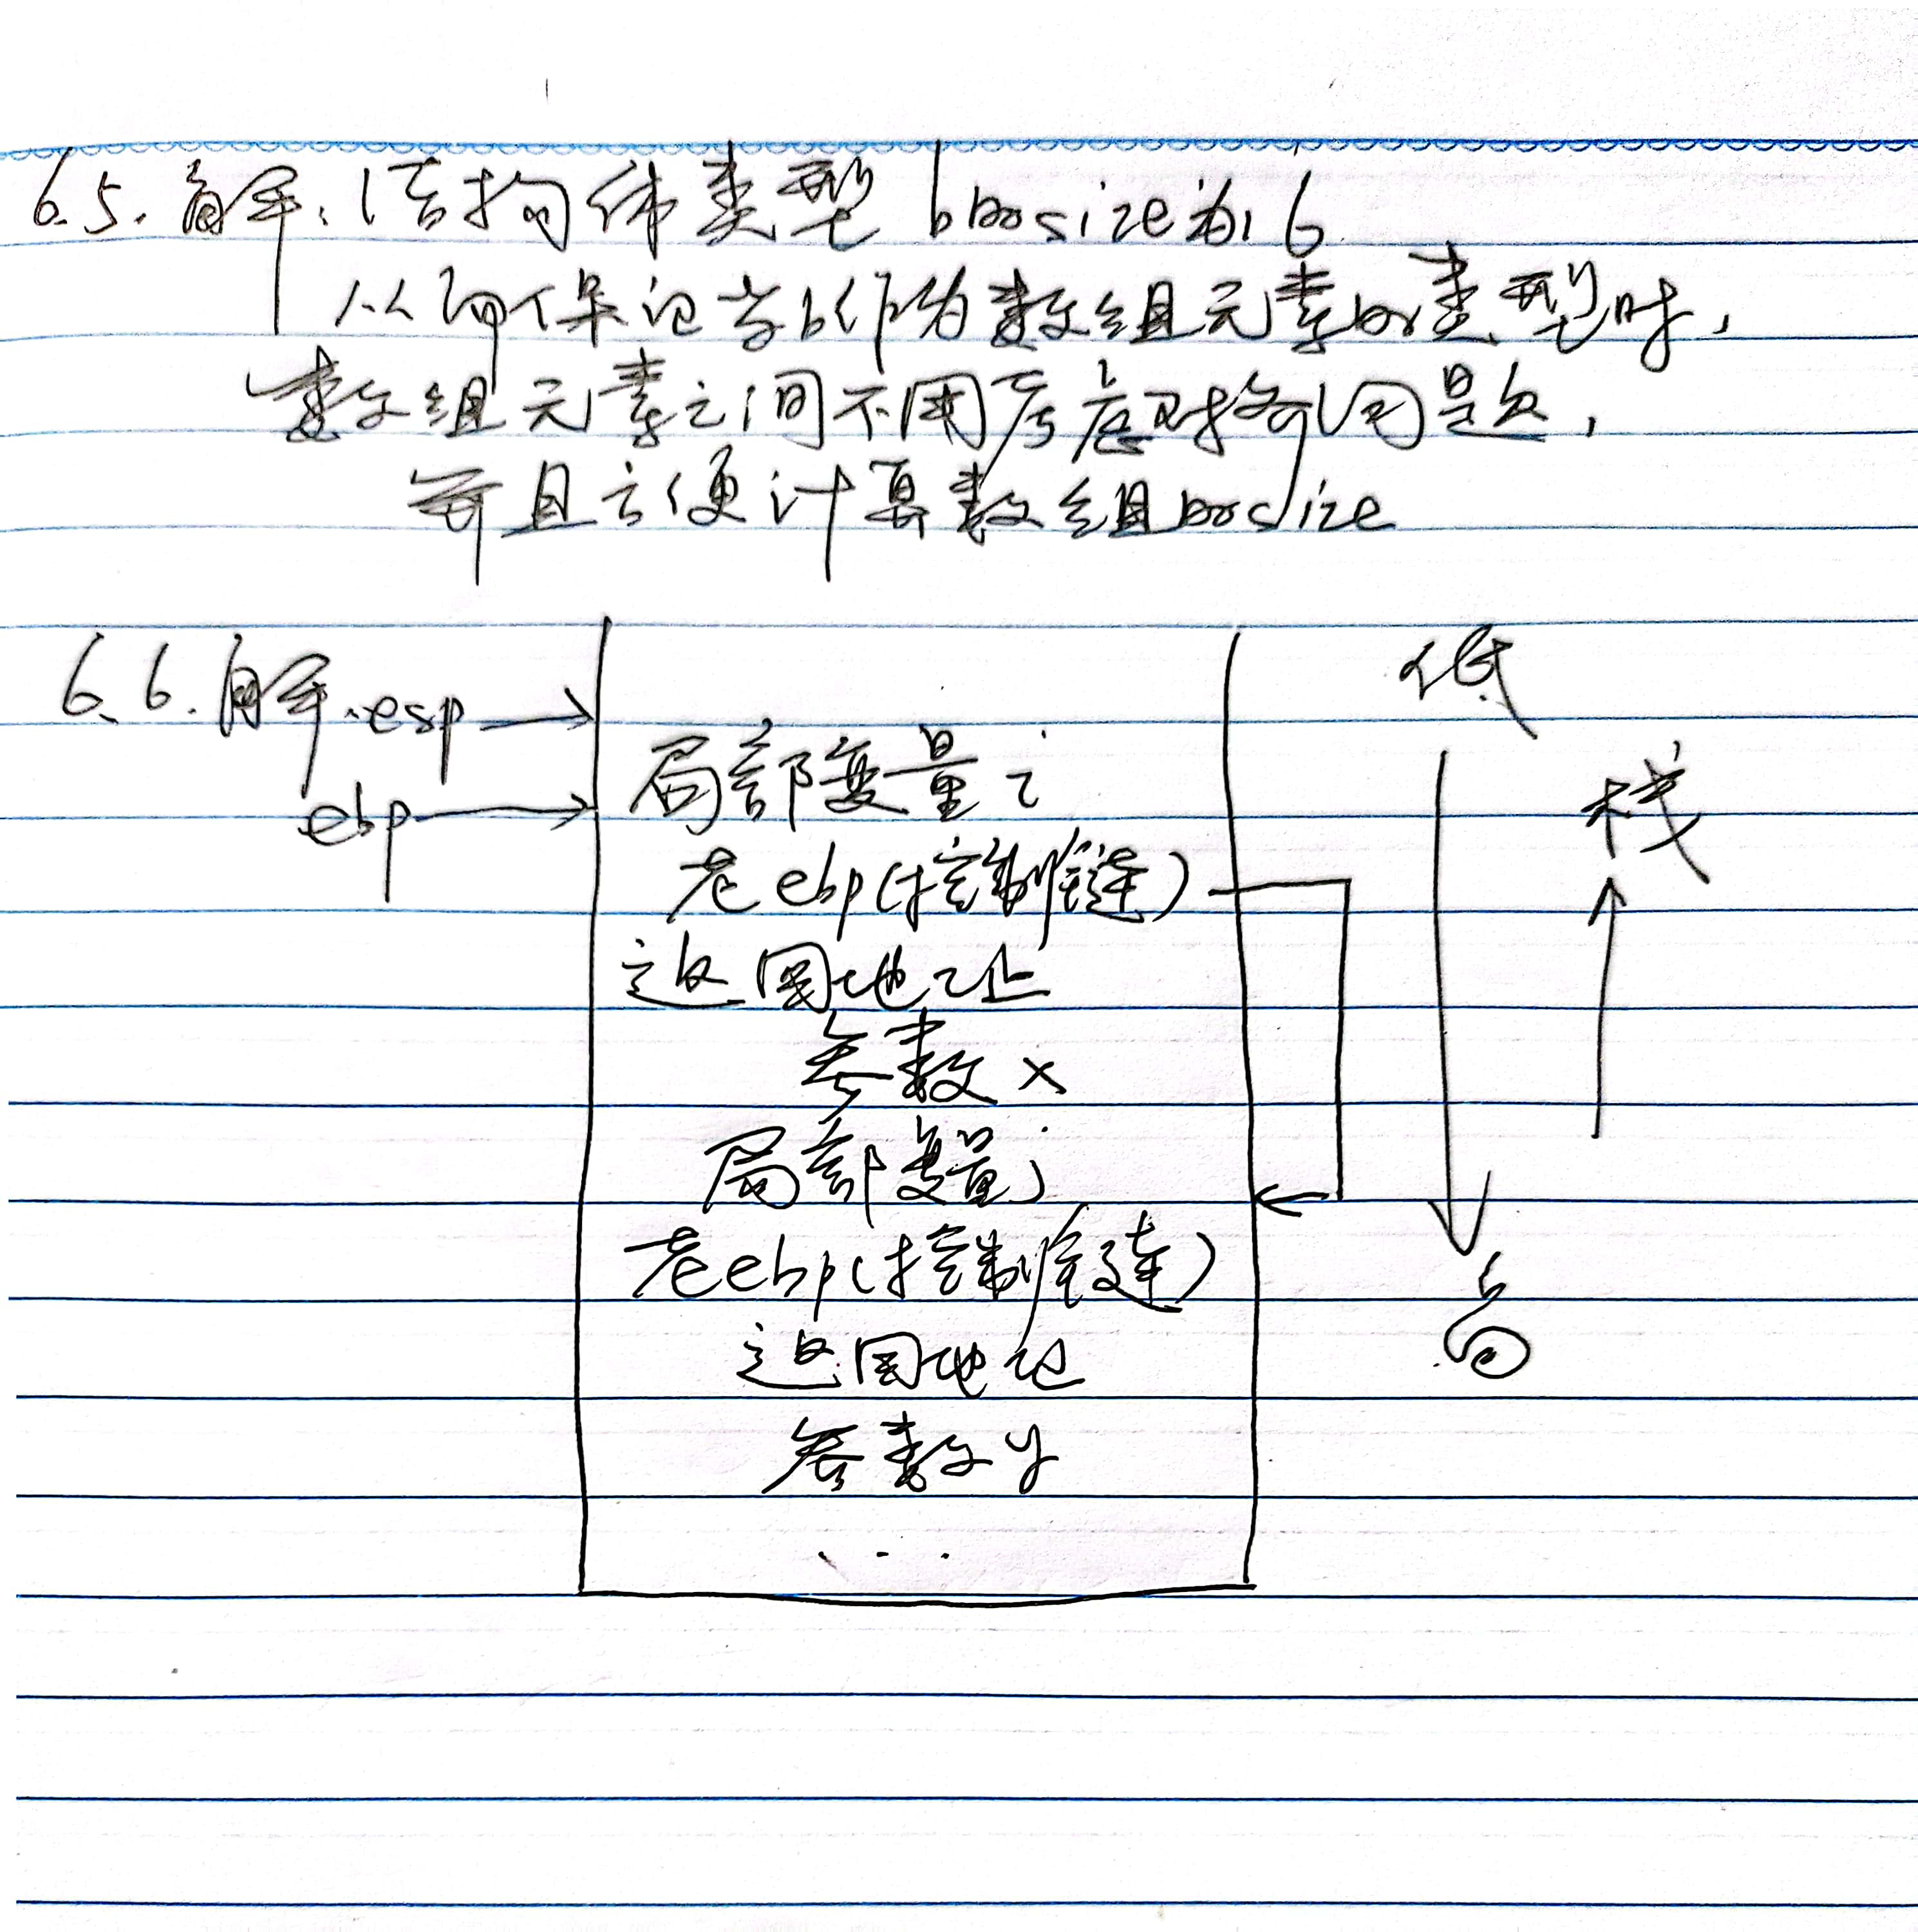 6.5. 解: 结构体类型b的size为16
从而保证当b作为数组元素的类型时,
数组元素之间不用考虑对齐问题,
并且方便计算数组的size
6.6. 解: esp
低
ebp
局部变量 i
栈
老 ebp (控制链)
返回地址
参数 x
局部变量 j
老 ebp (控制链)
高
返回地址
参数 y
...